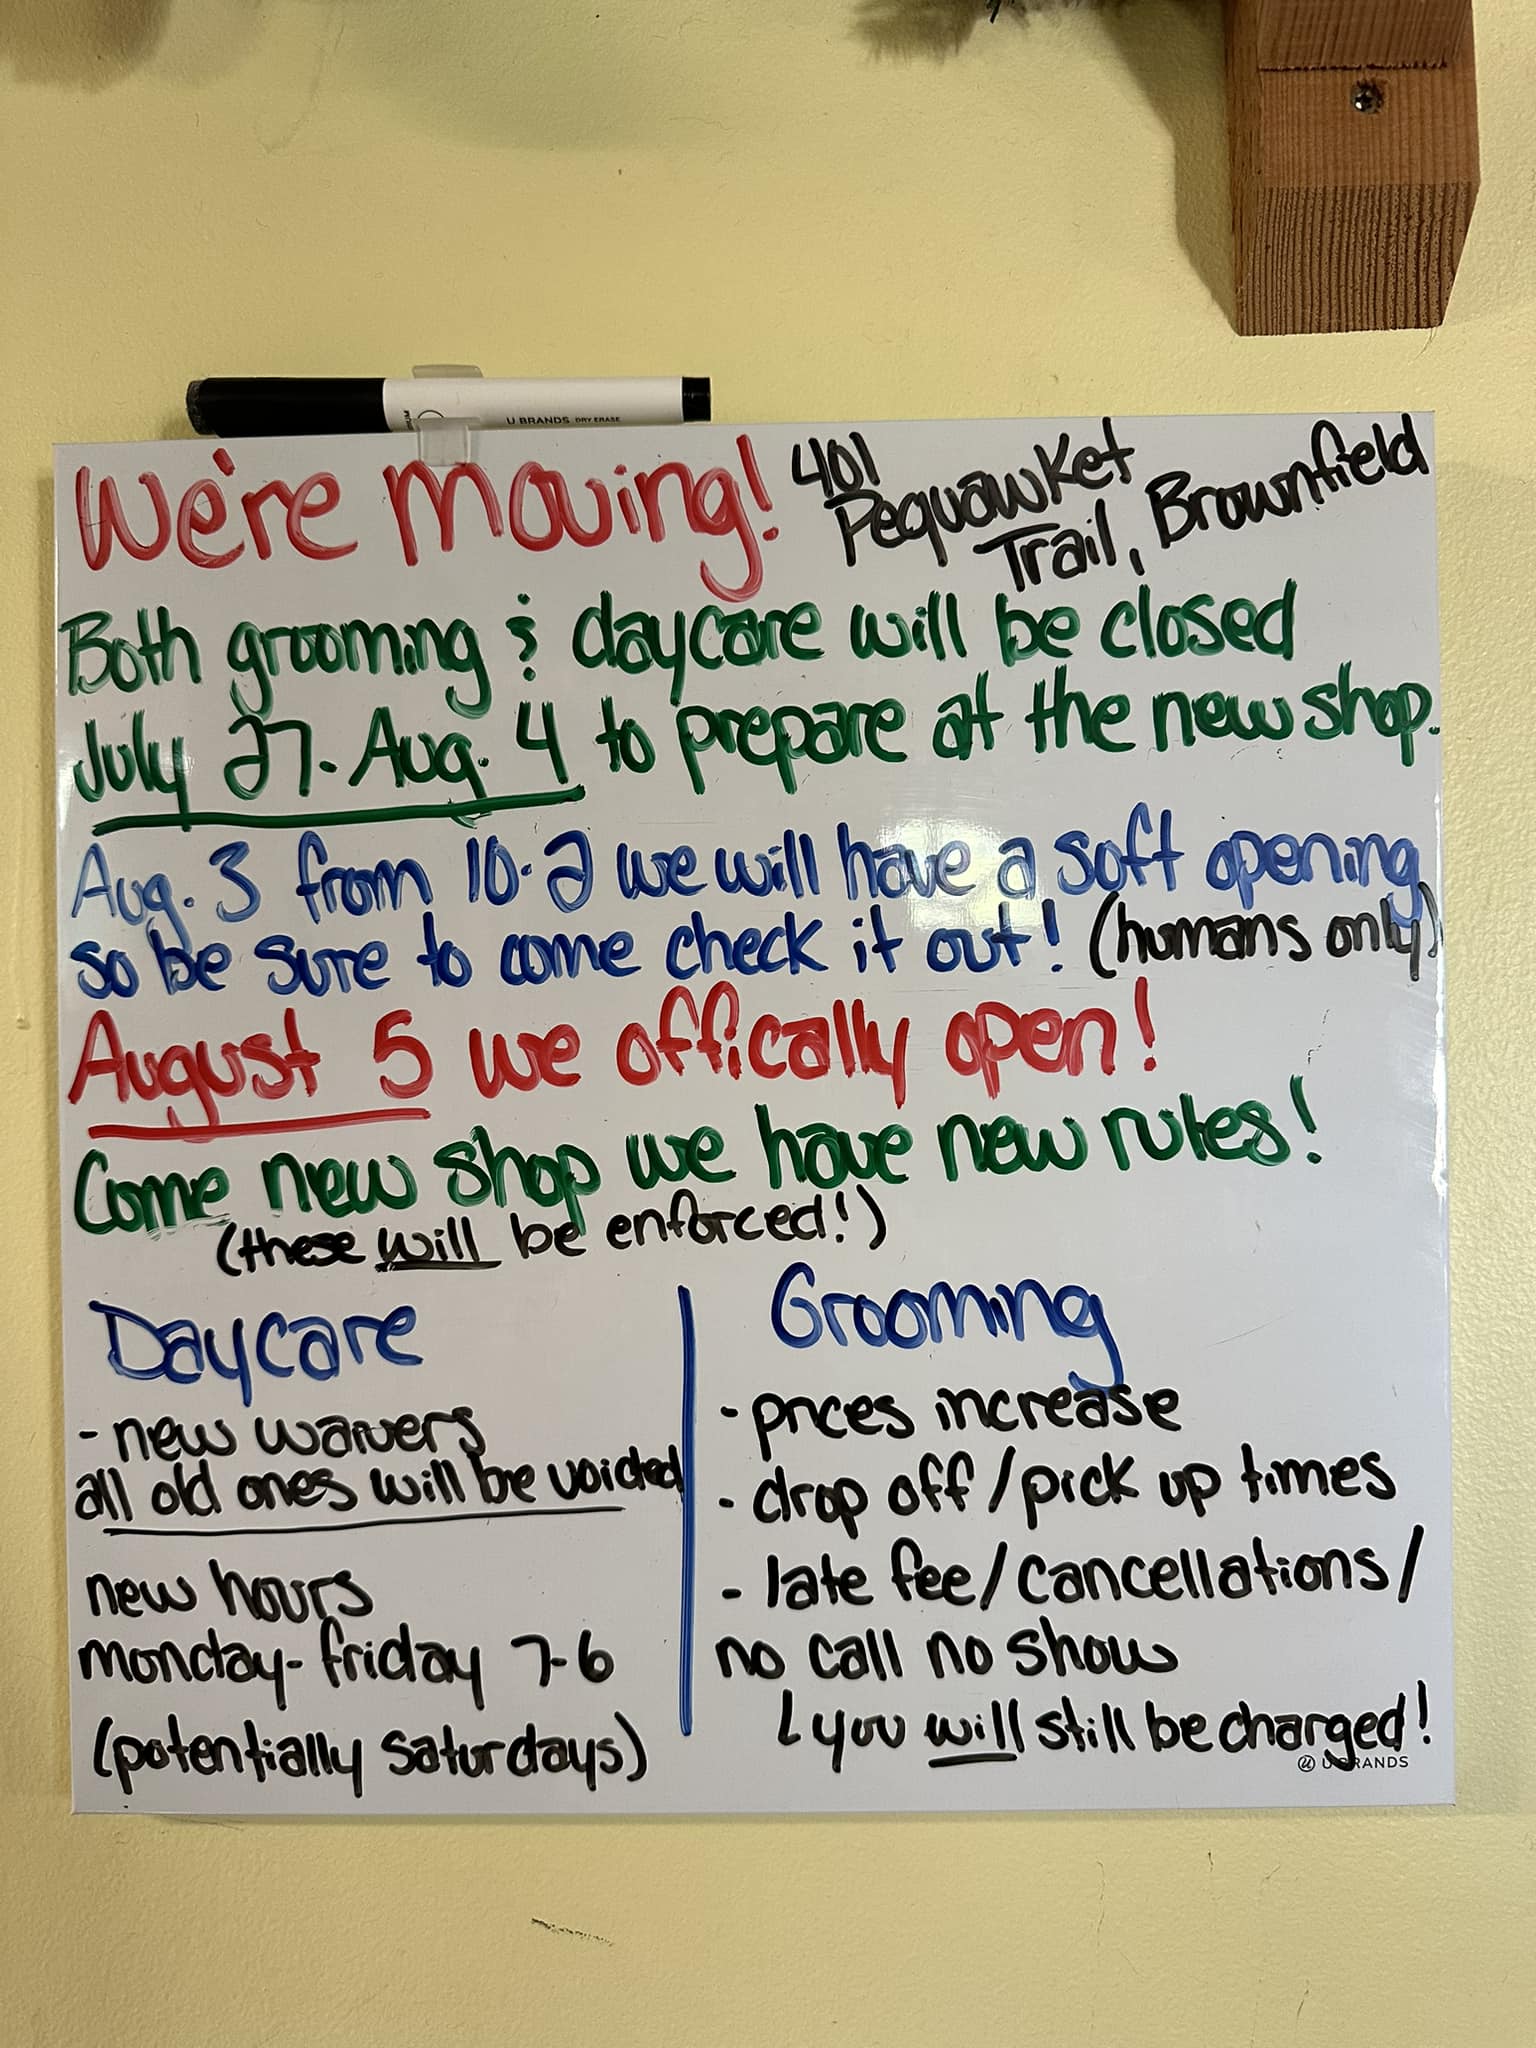 U BRANDS DRY ERASE
We're moving!
401
Pequawket
Trail, Brownfield
Both grooming & daycare will be closed
July 27-Aug. 4 to prepare at the new shop.
Aug. 3 from 10-2 we will have a soft opening
so be sure to come check it out! (humans only)
August 5 we offically open!
Come new shop we have new rules!
(these will be enforced!)
Daycare
- new waivers
all old ones will be voided
new hours
monday-friday 7-6
(potentially saturdays)
Grooming
- prices increase
- drop off/pick up times
- late fee/cancellations/
no call no show
you will still be charged!
U BRANDS